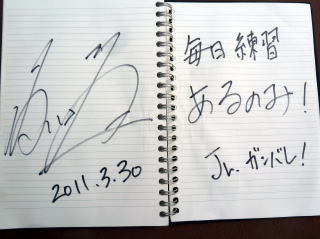 2011.3.30
毎日練習
あるのみ!
Jr.ガンバレ!